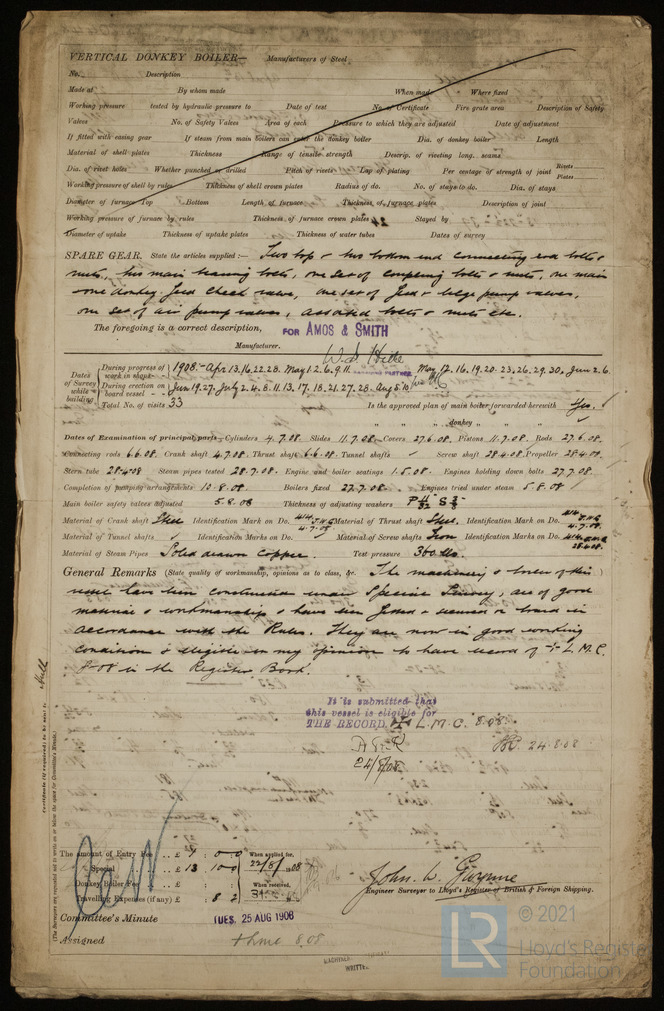 VERTICAL DONKEY BOILER— Manufacturers of Steel
No. Description
Made at By whom made When made Where fixed
Working pressure tested by hydraulic pressure to Date of test No. of Certificate Fire grate area Description of Safety
Valves No. of Safety Valves Area of each Pressure to which they are adjusted Date of adjustment
If fitted with easing gear If steam from main boilers can enter the donkey boiler Dia. of donkey boiler Length
Material of shell plates Thickness Range of tensile strength Descrip. of riveting long. seams
Dia. of rivet holes Whether punched or drilled Pitch of rivets Lap of plating Per centage of strength of joint Rivets Plates
Working pressure of shell by rules Thickness of shell crown plates Radius of do. No. of stays to do. Dia. of stays
Diameter of furnace Top Bottom Length of furnace Thickness of furnace plates Description of joint
Working pressure of furnace by rules Thickness of furnace crown plates Stayed by
Diameter of uptake Thickness of uptake plates Thickness of water tubes Dates of survey
SPARE GEAR. State the articles supplied:— Two top & two bottom end connecting rod bolts &
nuts, two main bearing bolts, one set of coupling bolts & nuts, one main
one donkey feed check valve, one set of feed & bilge pump valves,
one set of air pump valves, assorted bolts & nuts etc.
The foregoing is a correct description, FOR AMOS & SMITH
Manufacturer.
Dates of Survey while building
During progress of work in shops - - 1908:- Apr 13.16.22.28. May 1.2.6.9.11. May 12.16.19.20.23.26.29.30. June 2.6.
During erection on board vessel - - - Jun 19.27. July 2.4.8.11.13.17.18.21.27.28. Aug 5.10
Total No. of visits 33 Is the approved plan of main boiler forwarded herewith Yes.
" " " donkey " " "
Dates of Examination of principal parts—Cylinders 4.7.08. Slides 11.7.08. Covers 27.6.08. Pistons 11.7.08. Rods 27.6.08.
Connecting rods 6.6.08. Crank shaft 4.7.08. Thrust shaft 6.6.08. Tunnel shafts Screw shaft 28.4.08. Propeller 28.4.08.
Stern tube 28.4.08 Steam pipes tested 28.7.08. Engine and boiler seatings 1.5.08. Engines holding down bolts 27.7.08.
Completion of pumping arrangements 10.8.08. Boilers fixed 27.7.08. Engines tried under steam 5.8.08
Main boiler safety valves adjusted 5.8.08 Thickness of adjusting washers
Material of Crank shaft Steel Identification Mark on Do. 4.7.08 Material of Thrust shaft Steel. Identification Mark on Do. 4.7.08.
Material of Tunnel shafts Identification Marks on Do. Material of Screw shafts Iron Identification Marks on Do. 28.4.08.
Material of Steam Pipes Solid drawn Copper. Test pressure 360 lbs.
General Remarks (State quality of workmanship, opinions as to class, &c. The machinery & boiler of this
vessel have been constructed under Special Survey, are of good
material & workmanship & have been fitted & secured on board in
accordance with the Rules. They are now in good working
condition & eligible in my opinion to have record of + L.M.C.
8-08 in the Register Book.
Certificate (if required) to be sent to Hull
(The Surveyors are requested not to write on or below the space for Committee's Minute.)
It is submitted that
this vessel is eligible for
THE RECORD. + L.M.C. 8.08.
24/8/08
24.8.08
The amount of Entry Fee .. £ : 0 : 0 When applied for,
Special .. £ 13 : 10 : 0 22/8/1908
Donkey Boiler Fee .. £ : : When received,
Travelling Expenses (if any) £ : 8 : 2
John W. Gwynne
Engineer Surveyor to Lloyd's Register of British & Foreign Shipping.
Committee's Minute TUES. 25 AUG 1908
Assigned + Lmc 8.08
WRITTEN.
LR
© 2021
Lloyd's Register
Foundation